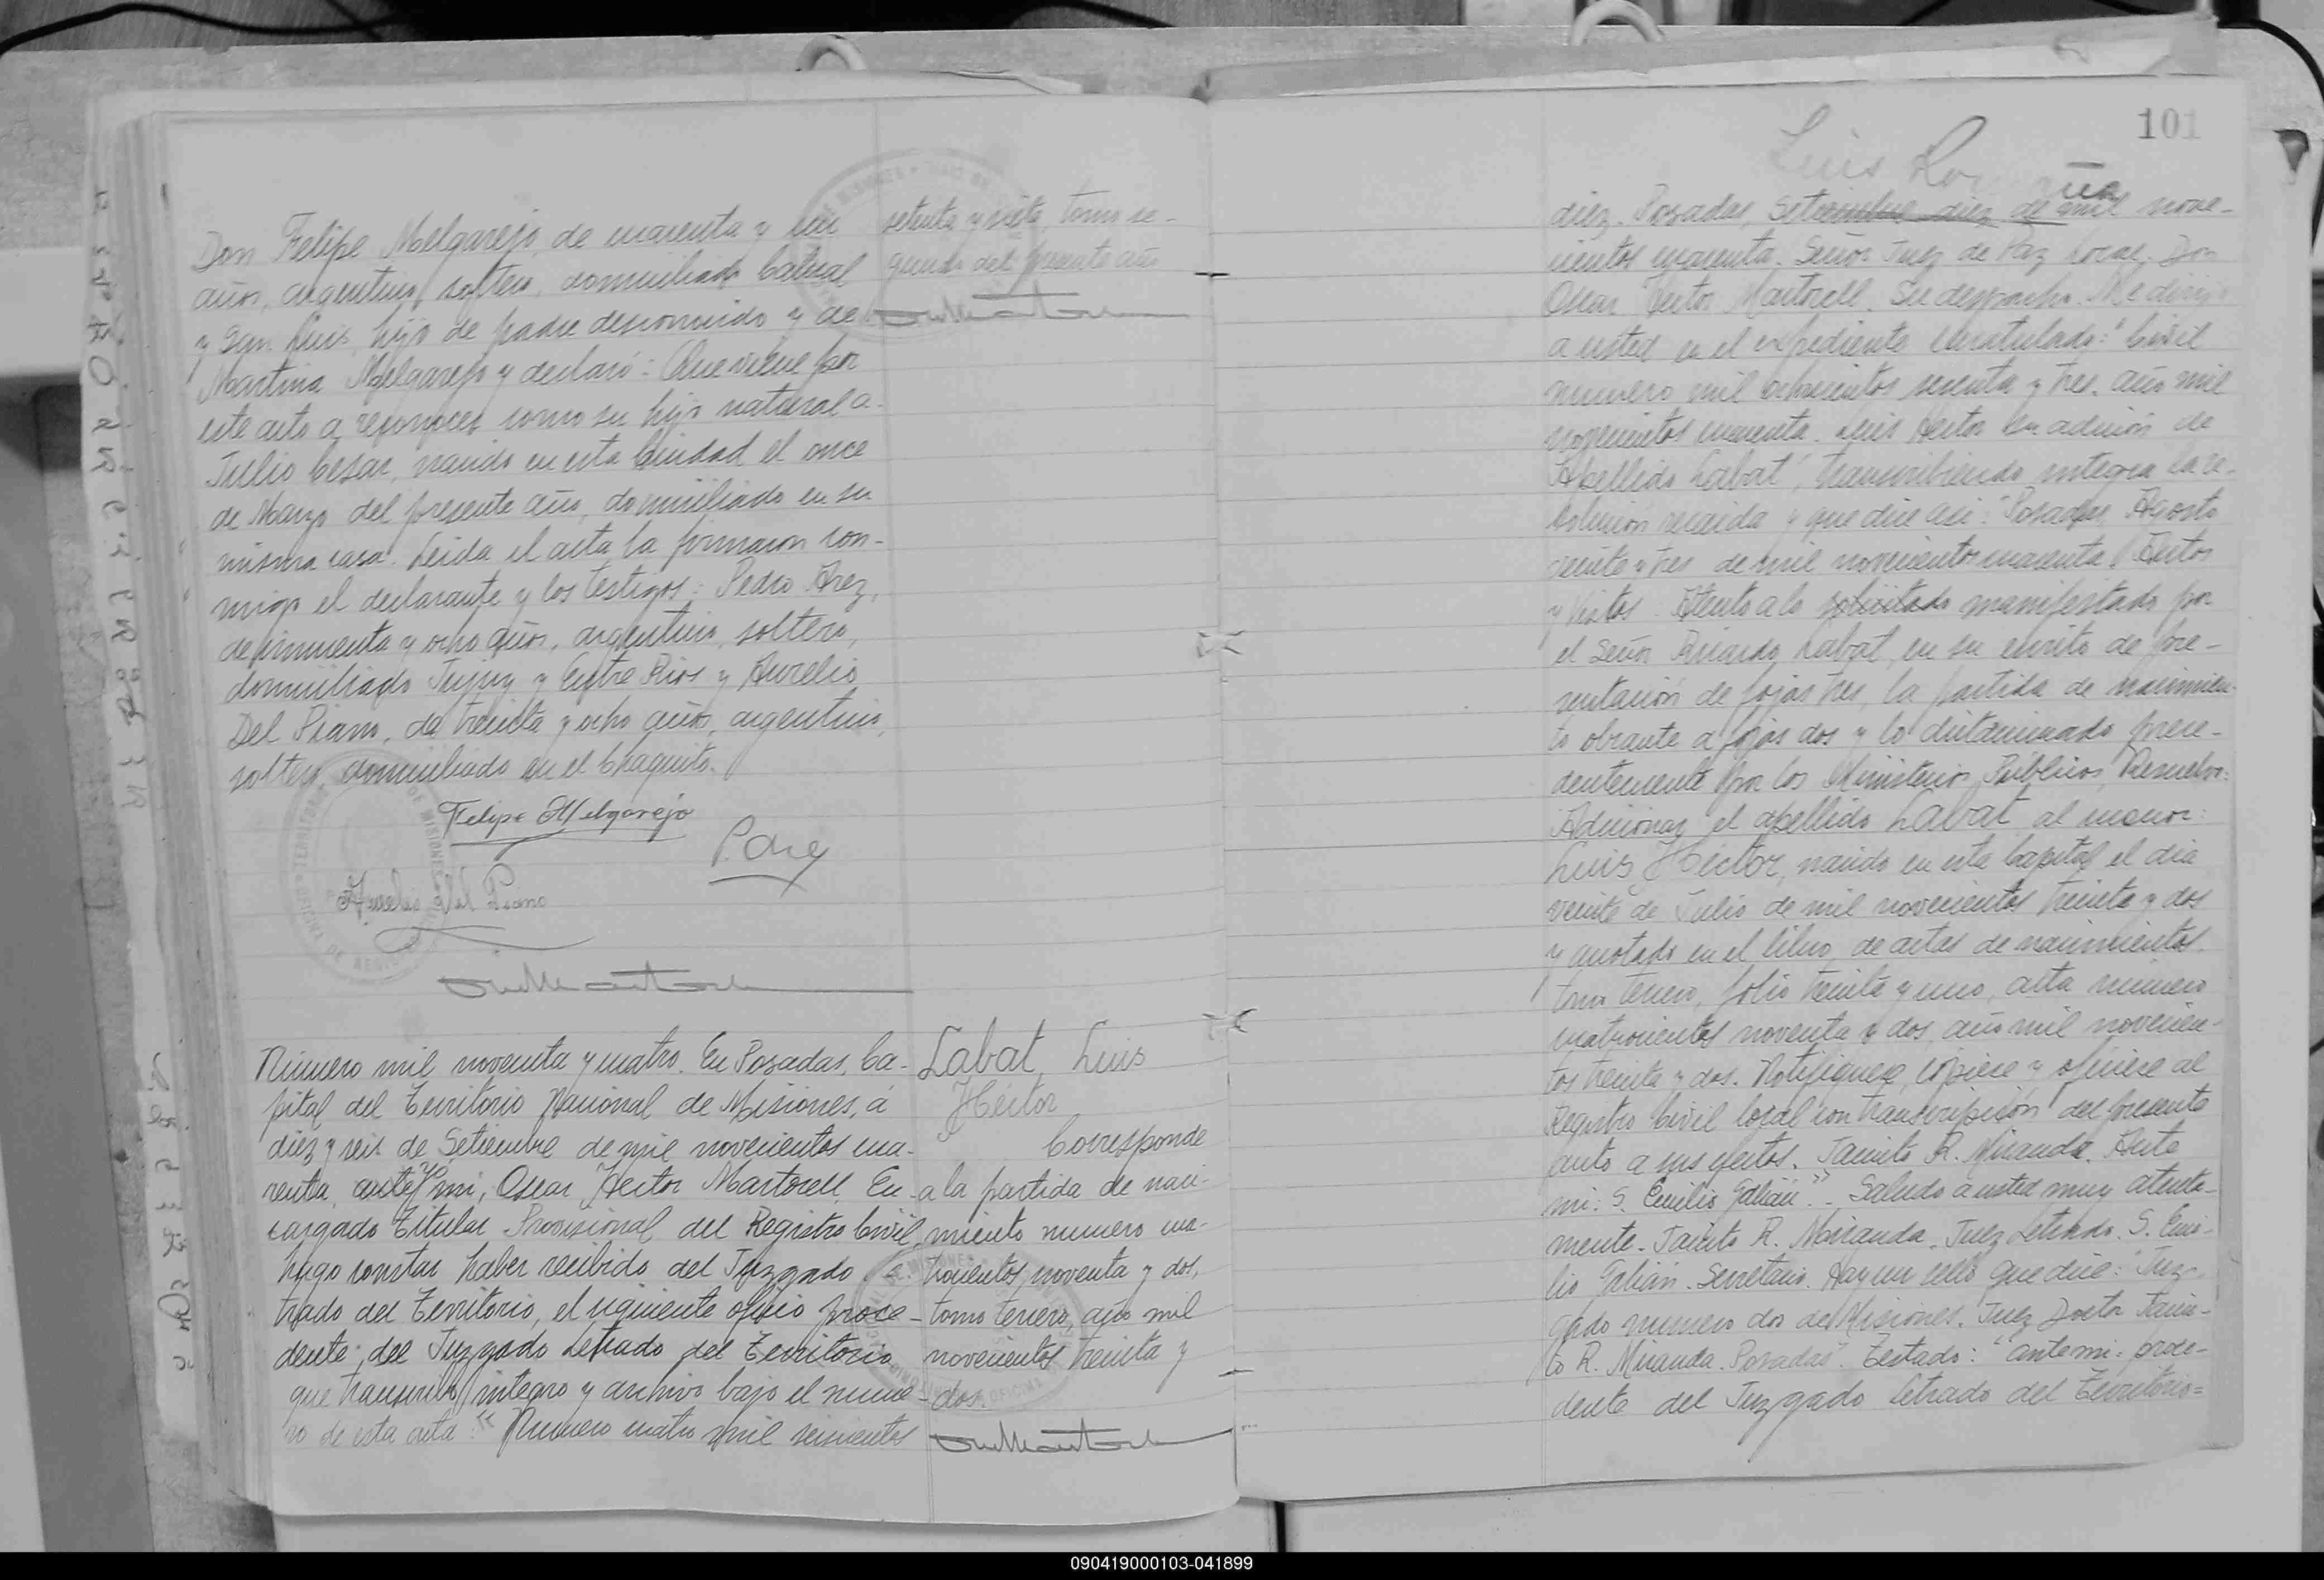 Don Felipe Melgarejo, de cuarenta y un
años, argentino, soltero, domiciliado Cabral
y San Luis, hijo de padre desconocido y de
Martina Melgarejo y declaró: Que viene por
este acto a reconocer como su hijo natural a
Julio Cesar, nacido en esta Ciudad el once
de Marzo del presente año, domiciliado en su
misma casa. Leida el acta la firmaron con-
migo el declarante y los testigos: Pedro Arez,
de cincuenta y ocho años, argentino, soltero,
domiciliado Jujuy y Entre Rios y Aurelio
Del Piano, de treinta y ocho años, argentino,
soltero, domiciliado en el Chaquito.
Felipe Melgarejo
P. Arez
Aurelio Del Piano
setenta y siete, tomo se-
gundo del presente año
Número mil noventa y cuatro. En Posadas, Ca-
pital del Territorio Nacional de Misiones, á
diez y seis de Setiembre de mil novecientos cua-
renta, ante mi, Oscar Hector Martorell, En-
cargado Titular Provisional del Registro Civil,
hago constar haber recibido del Juzgado Le-
trado del Territorio, el siguiente oficio proce-
dente del Juzgado Letrado del Territorio
que transcribo integro y archivo bajo el nume-
ro de esta acta "Numero cuatro mil seiscientos
Labat, Luis
Héctor
Corresponde
a la partida de naci-
miento numero cua-
trocientos noventa y dos,
tomo tercero, año mil
novecientos treinta y
dos.
101
Luis
diez. Posadas, Setiembre diez de mil nove-
cientos cuarenta. Señor Juez de Paz Local. Don
Oscar Hector Martorell. Su despacho. Me dirijo
a usted en el expediente caratulado: "Civil
numero mil ochocientos sesenta y tres. año mil
novecientos cuarenta. Luis Hector su adición de
Apellido Labat", transcribiendo integra la re-
solución recaida y que dice asi: "Posadas, Agosto
veinte y tres de mil novecientos cuarenta. Autos
y Vistos. Atento a lo solicitado manifestado por
el Señor Ricardo Labat, en su escrito de pre-
sentación de fojas tres, la partida de nacimien-
to obrante a fojas dos y lo dictaminado prece-
dentemente por los Ministerios Públicos, Resuelvo:
Adicionar el apellido Labat al menor:
Luis Héctor, nacido en esta Capital el dia
veinte de Julio de mil novecientos treinta y dos
y anotado en el libro de actas de nacimientos
tomo tercero, folio treinta y uno, acta numero
cuatrocientos noventa y dos, año mil novecien-
tos treinta y dos. Notifiquese, cópiese y oficiese al
Registro Civil local con transcripción del presente
auto a sus efectos. Jacinto R. Miranda. Ante
mi: S. Emilio Galián". Saludo a usted muy atenta-
mente. Jacinto R. Miranda. Juez Letrado. S. Emi-
lio Galián. Secretario. Hay un sello que dice: "Juz-
gado numero dos de Misiones. Juez Doctor Jacin-
to R. Miranda. Posadas". Testado: "ante mi: proce-
dente del Juzgado Letrado del Territorio=
090419000103-041899